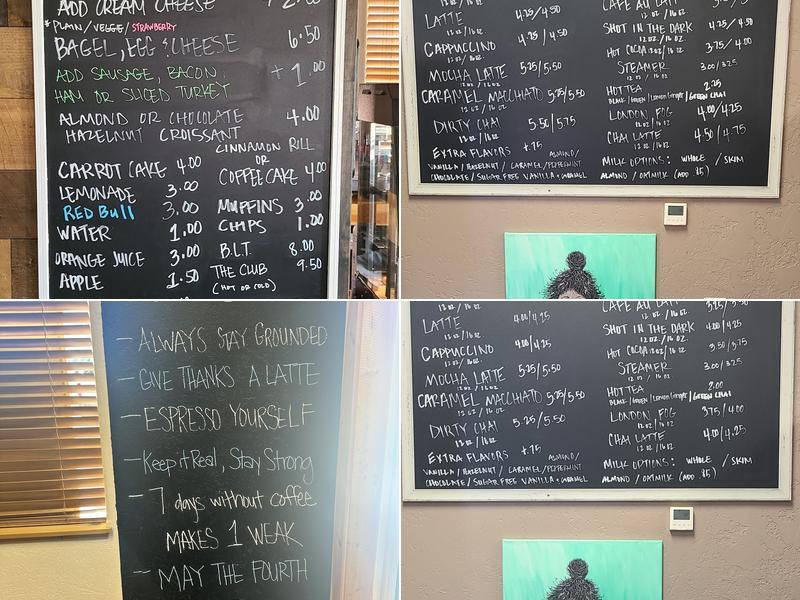 ADD CREAM CHEESE + 2.00
* PLAIN / VEGGIE / STRAWBERRY
BAGEL, EGG & CHEESE 6.50
ADD SAUSAGE, BACON, + 1.00
HAM OR SLICED TURKEY
ALMOND OR CHOCOLATE 4.00
HAZELNUT CROISSANT
CINNAMON RILL
OR
COFFEE CAKE 4.00
CARROT CAKE 4.00
LEMONADE 3.00
RED Bull 3.00
WATER 1.00
ORANGE JUICE 3.00
APPLE 1.50
MUFFINS 3.00
CHIPS 1.00
B.L.T. 8.00
THE CLUB 9.50
(HOT OR COLD)
12 OZ / 16 OZ
LATTE 4.25/4.50
12 OZ / 16 OZ
CAPPUCCINO 4.25/4.50
12 OZ / 16 OZ
MOCHA LATTE 5.25/5.50
12 OZ / 16 OZ
CARAMEL MACCHIATO 5.25/5.50
12 OZ / 16 OZ
DIRTY CHAI 5.50/5.75
12 OZ / 16 OZ
EXTRA FLAVORS +.75 ALMOND/
VANILLA / HAZELNUT / CARAMEL / PEPPERMINT
CHOCOLATE / SUGAR FREE VANILLA + CARAMEL
CAFE AU LAIT
12 OZ / 16 OZ
SHOT IN THE DARK 4.25/4.50
12 OZ / 16 OZ.
HOT COCOA 12 OZ / 16 OZ 3.75/4.00
STEAMER 3.00/3.25
12 OZ / 16 OZ
HOT TEA 2.25
BLACK / GREEN / Lemon Ginger / GREEN CHAI
LONDON FOG 4.00/4.25
12 OZ / 16 OZ
CHAI LATTE 4.50/4.75
12 OZ / 16 OZ
MILK OPTIONS: WHOLE / SKIM
ALMOND / OATMILK (ADD $1)
- ALWAYS STAY GROUNDED
- GIVE THANKS A LATTE
- ESPRESSO YOURSELF
- Keep it Real, Stay Strong
- 7 days without coffee
MAKES 1 WEAK
- MAY THE FOURTH
12 OZ / 16 OZ
LATTE 4.00/4.25
12 OZ / 16 OZ
CAPPUCCINO 4.00/4.25
12 OZ / 16 OZ
MOCHA LATTE 5.25/5.50
12 OZ / 16 OZ
CARAMEL MACCHIATO 5.25/5.50
12 OZ / 16 OZ
DIRTY CHAI 5.25/5.50
12 OZ / 16 OZ
EXTRA FLAVORS +.75 ALMOND/
VANILLA / HAZELNUT / CARAMEL / PEPPERMINT
CHOCOLATE / SUGAR FREE VANILLA + CARAMEL
CAFE AU LAIT
12 OZ / 16 OZ
SHOT IN THE DARK 4.00/4.25
12 OZ / 16 OZ.
HOT COCOA 12 OZ / 16 OZ 3.50/3.75
STEAMER 3.00/3.25
12 OZ / 16 OZ
HOT TEA 2.00
BLACK / GREEN / Lemon Ginger / GREEN CHAI
LONDON FOG 3.75/4.00
12 OZ / 16 OZ
CHAI LATTE 4.00/4.25
12 OZ / 16 OZ
MILK OPTIONS: WHOLE / SKIM
ALMOND / OATMILK (ADD $1)